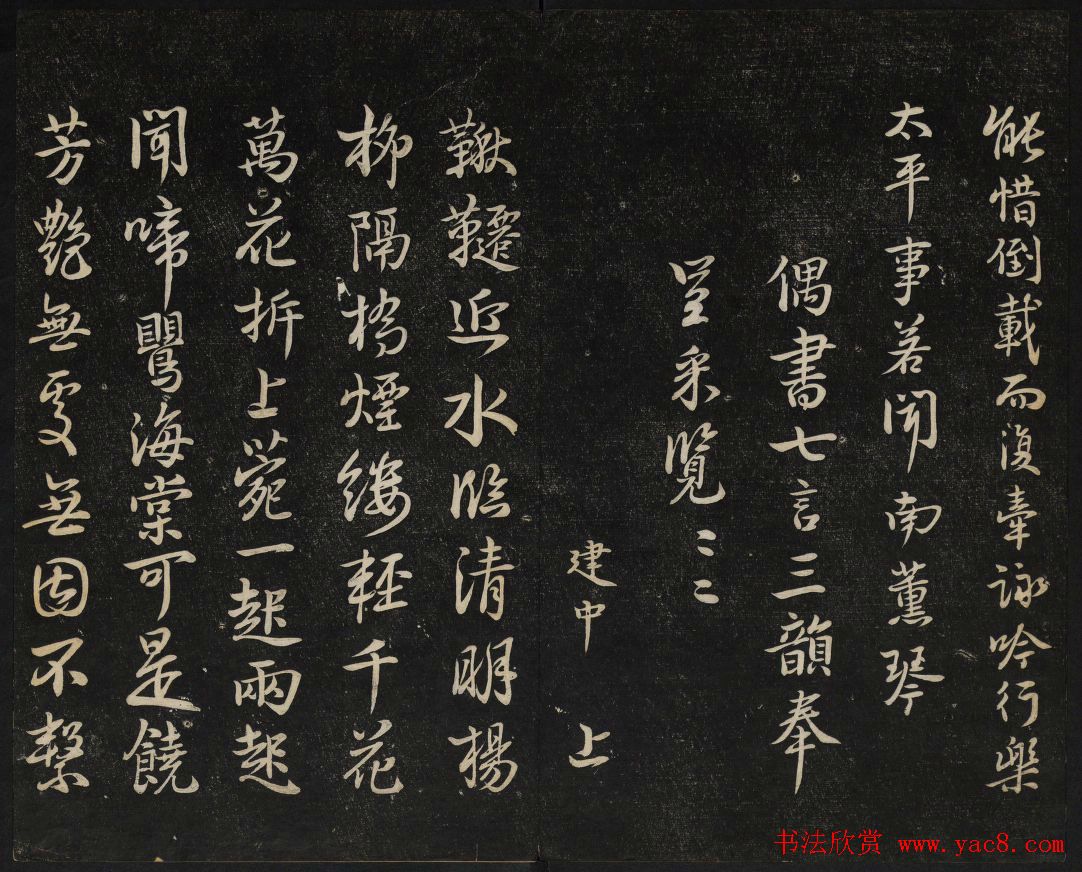 能惜倒載而復牽詠吟行樂
太平事若聞南薰琴
偶書七言三韻奉
呈采覽〻〻
建中 上
鞦韆近水臨清明楊
柳隔橋煙縷輕千花
萬花拆上苑一起兩起
聞啼鸎海棠可是饒
芳艷無處無因不繫
书法欣赏 www.yac8.com